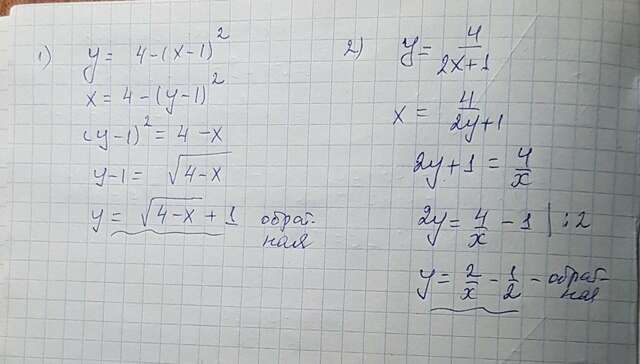 1) y = 4-(x-1)²
x = 4-(y-1)²
(y-1)² = 4-x
y-1 = √(4-x)
y = √(4-x) + 1 обрат-
ная
2) y = 4/(2x+1)
x = 4/(2y+1)
2y+1 = 4/x
2y = 4/x - 1 | :2
y = 2/x - 1/2 - обрат-
ная